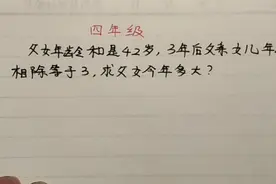 四年级
父女年龄和是42岁,3年后父亲女儿年
相除等于3,求父女今年多大?